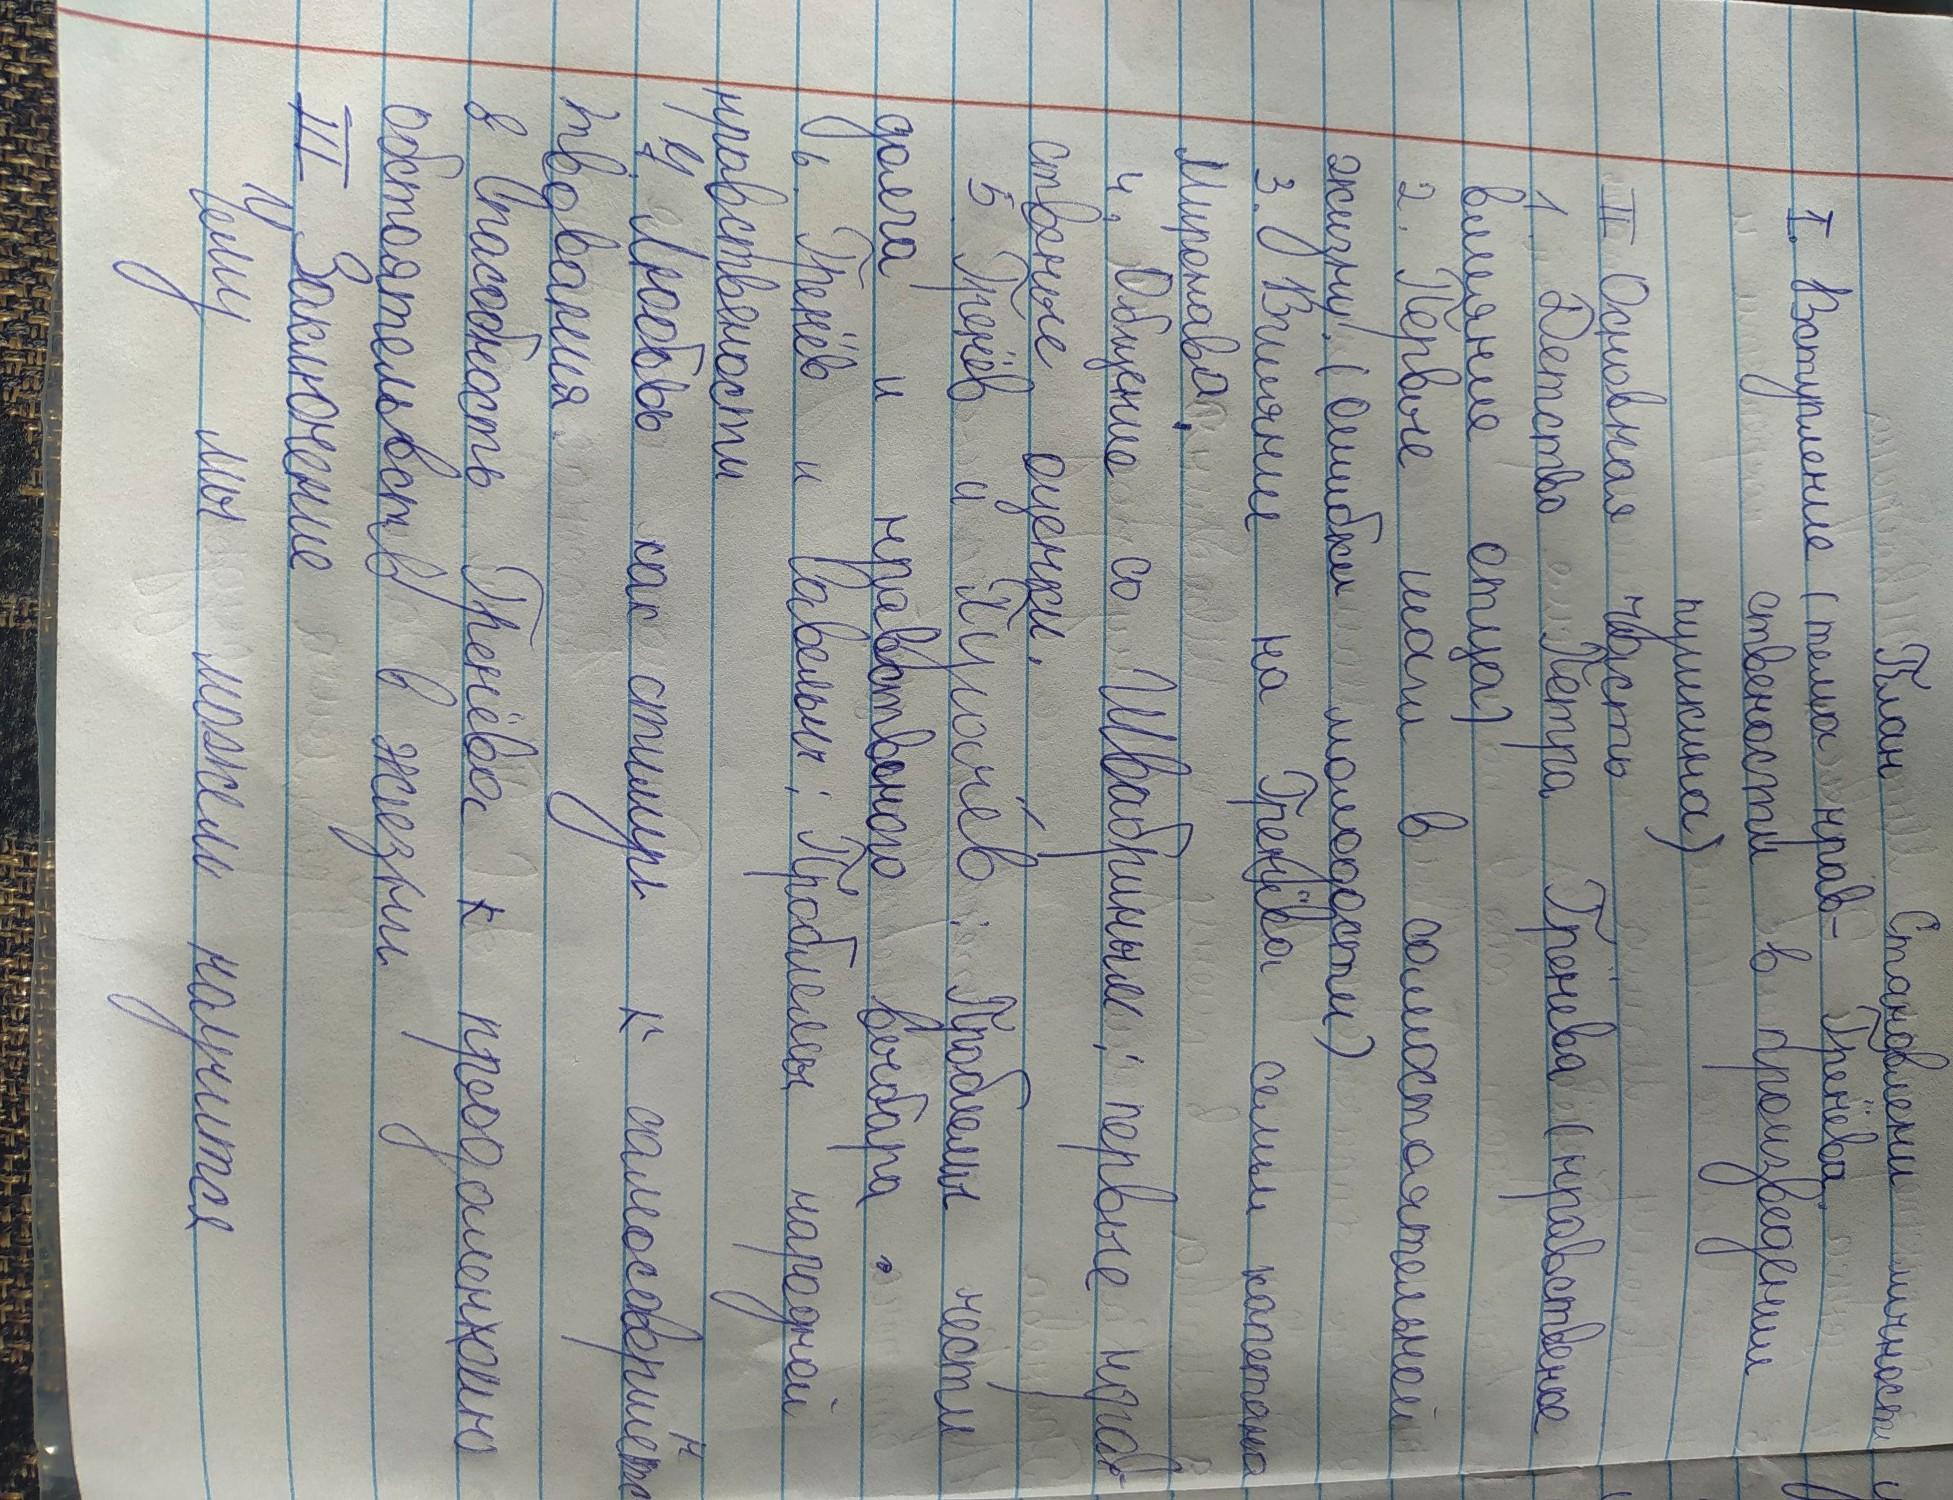 План Становлени личности
I. Вступление (тема нрав- Гренёва
ствености в произведении
пушкина)
II Основная часть
1. Детство Петра Гренёва (нравственое
влияние отца)
2. Первые шаги в самостоятельной
жизни. (ошибки молодости)
3. Влияние на Гренёва семьи капетана
Миронова.
4. Общение со Швабриным; первые нрав-
ственые оценки.
5 Гренёв и Пугочёв: Проблемы чести
долга и нравственого выбара.
6. Гренёв и Савельич: Проблемы народной
нравствености
7 Любовь как стимул к самосовершен
твования.
8 Спасобность Гренёва к преодоленхению
обстоятельств в жезни
III Заключение
Чему мы можем научится